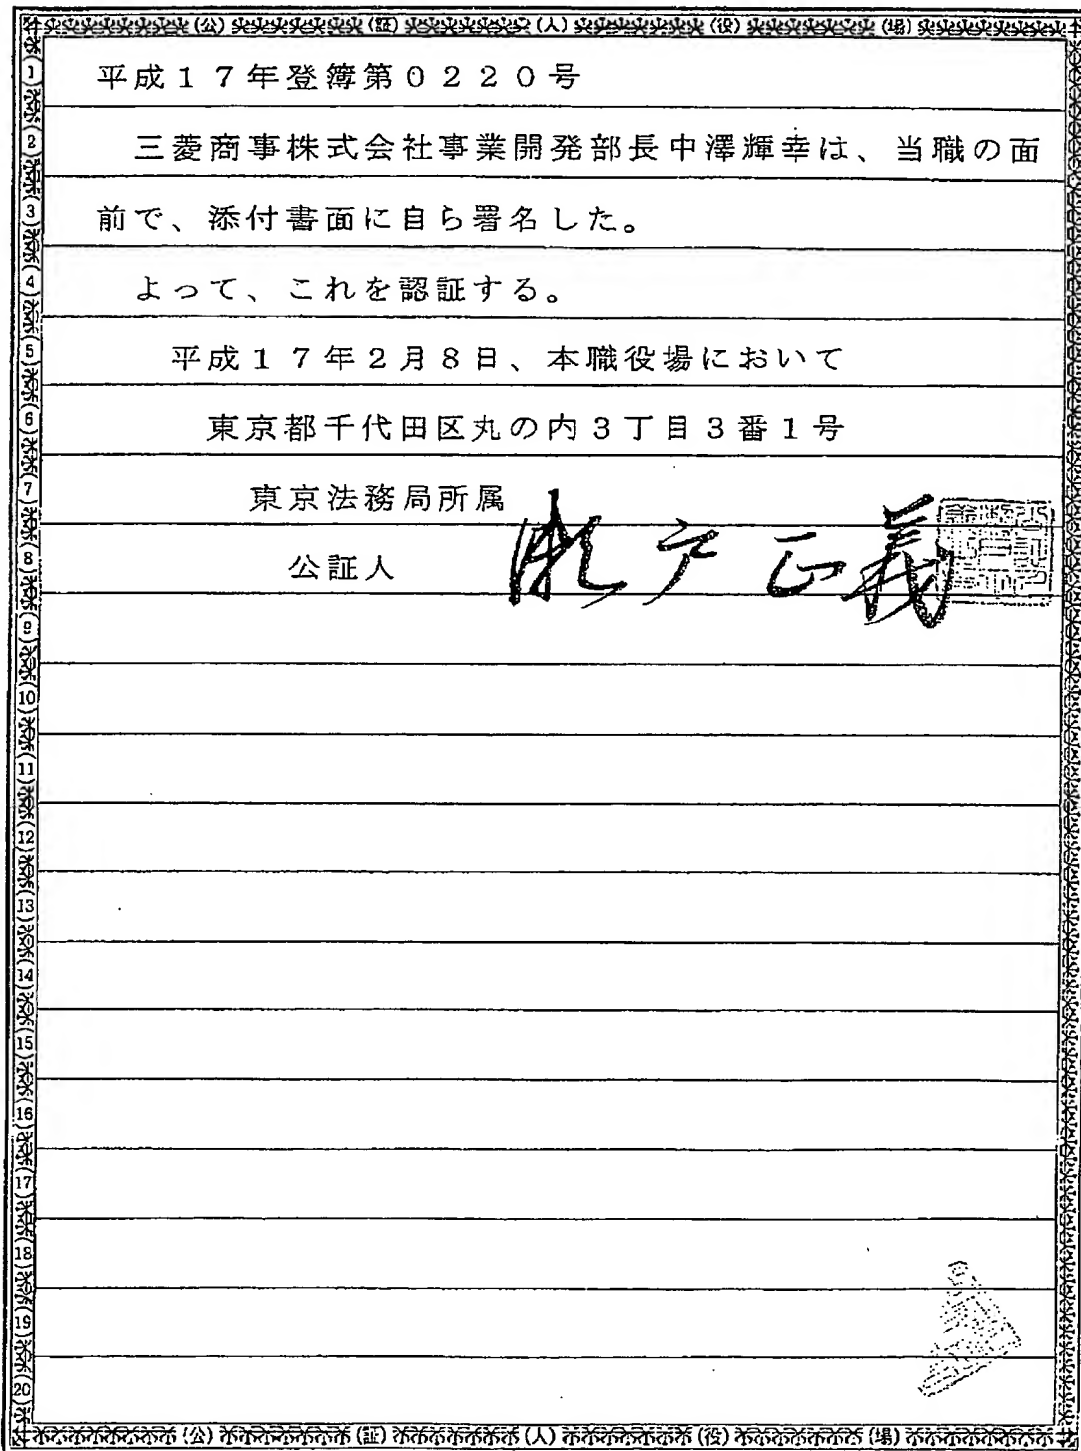 (公) (証) (人) (役) (場)
1 平成１７年登簿第０２２０号
2 三菱商事株式会社事業開発部長中澤輝幸は、当職の面
3 前で、添付書面に自ら署名した。
4 よって、これを認証する。
5 平成１７年２月８日、本職役場において
6 東京都千代田区丸の内３丁目３番１号
7 東京法務局所属
8 公証人 瀬戸正義
9
10
11
12
13
14
15
16
17
18
19
20
(公) (証) (人) (役) (場)